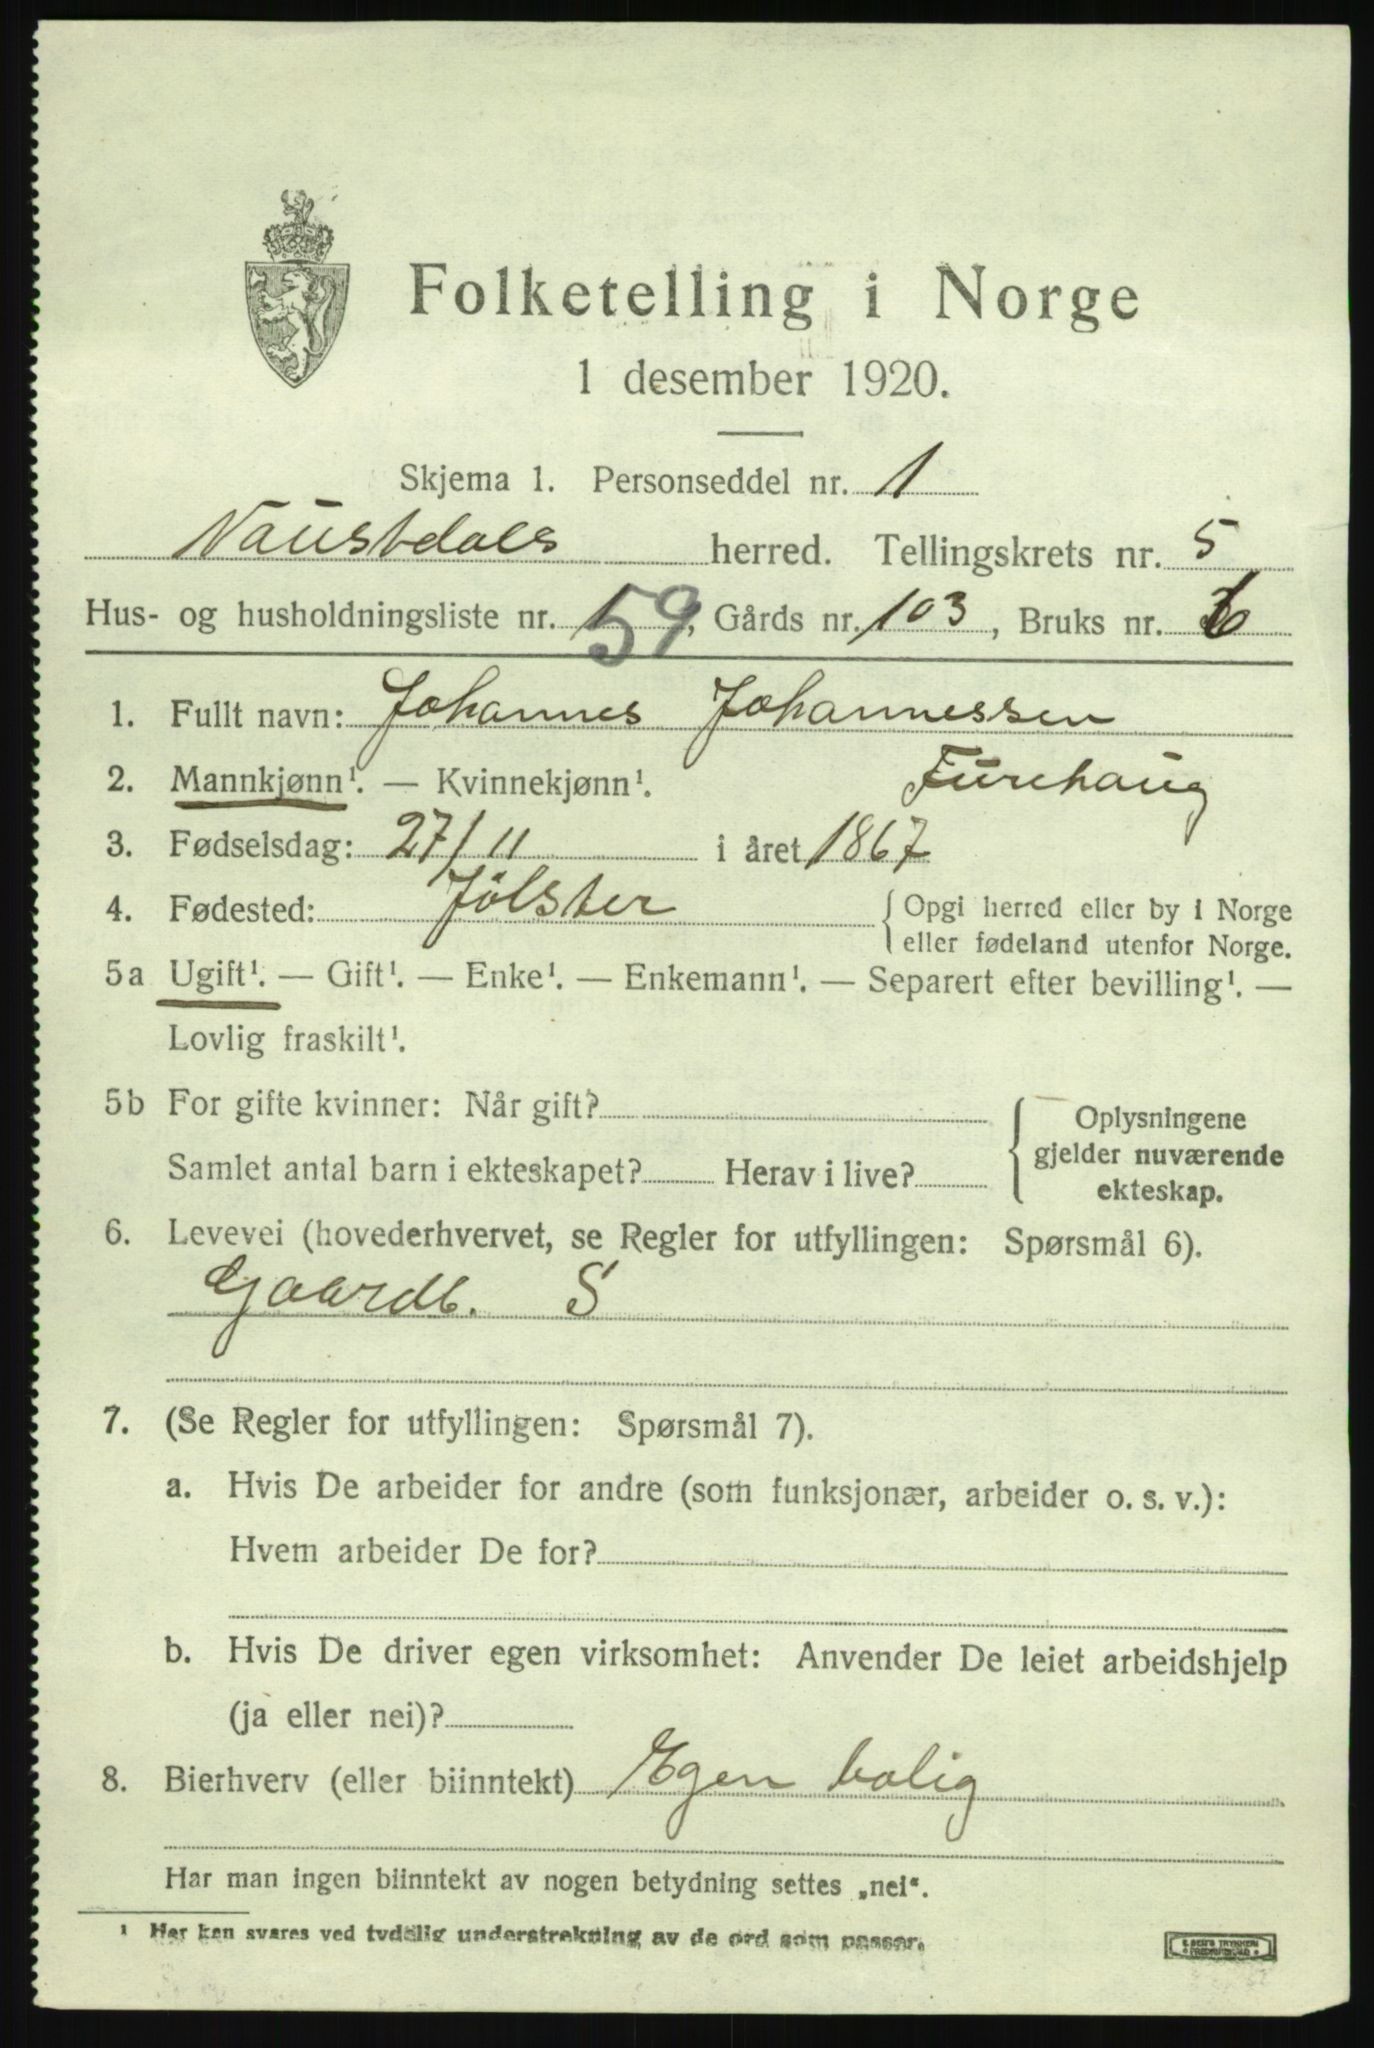 Folketelling i Norge
1 desember 1920.
Skjema 1. Personseddel nr. 1
Naustdals herred. Tellingskrets nr. 5
Hus- og husholdningsliste nr. 59, Gårds nr. 103, Bruks nr. 6
1. Fullt navn: Johannes Johannessen
Furehaug
2. Mannkjønn¹. — Kvinnekjønn¹.
3. Fødselsdag: 27/11 i året 1867
4. Fødested: Jölster { Opgi herred eller by i Norge
eller fødeland utenfor Norge.
5a Ugift¹. — Gift¹. — Enke¹. — Enkemann¹. — Separert efter bevilling¹. —
Lovlig fraskilt¹.
5b For gifte kvinner: Når gift?
Samlet antal barn i ekteskapet? Herav i live?
{ Oplysningene
gjelder nuværende
ekteskap.
6. Levevei (hovederhvervet, se Regler for utfyllingen: Spørsmål 6).
Gaardb. S
7. (Se Regler for utfyllingen: Spørsmål 7).
a. Hvis De arbeider for andre (som funksjonær, arbeider o. s. v.):
Hvem arbeider De for?
b. Hvis De driver egen virksomhet: Anvender De leiet arbeidshjelp
(ja eller nei)?
8. Bierhverv (eller biinntekt) Egen bolig
Har man ingen biinntekt av nogen betydning settes „nei“.
¹ Her kan svares ved tydelig understrekning av de ord som passer.